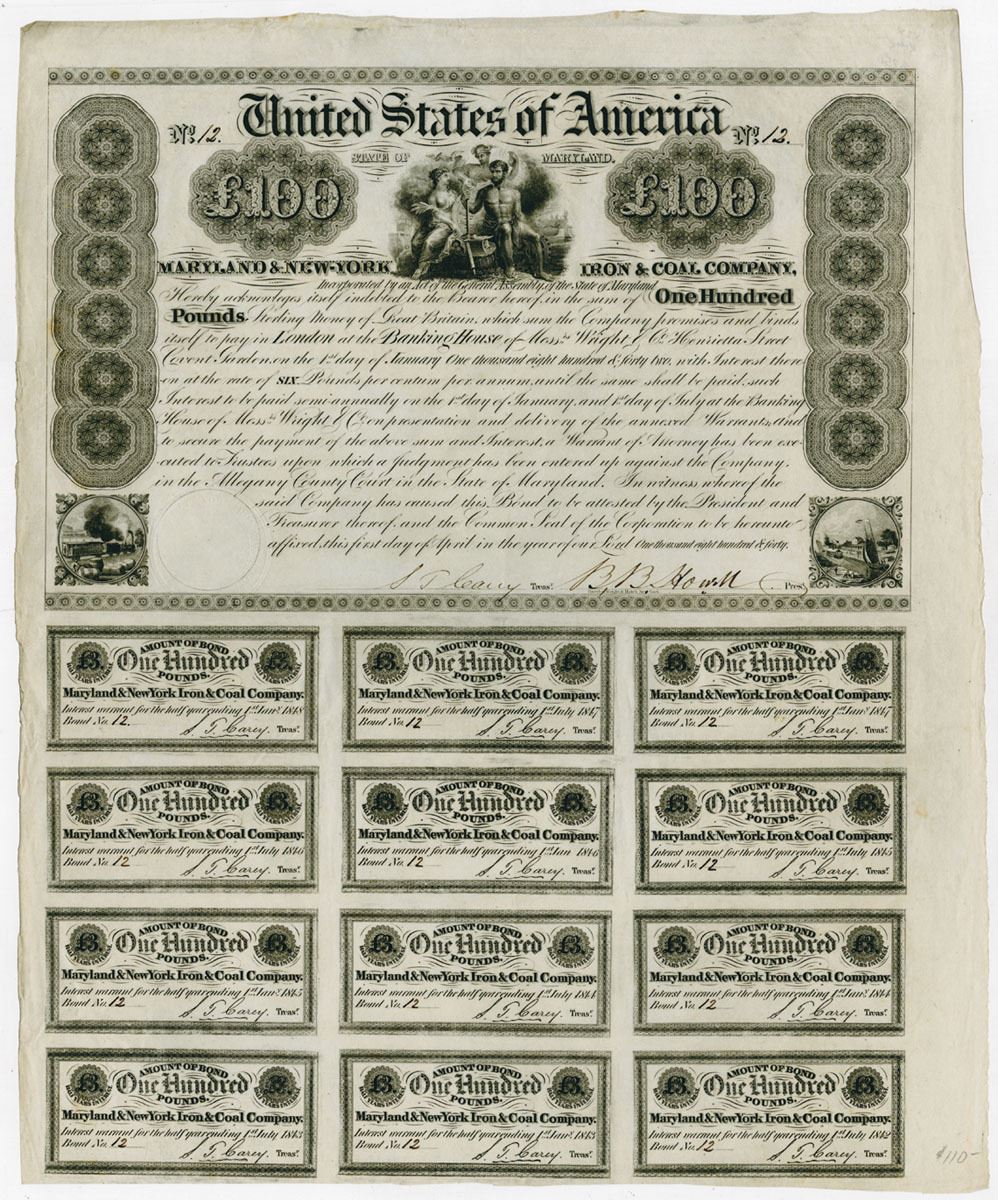 United States of America
No. 12.
No. 12.
STATE OF MARYLAND.
£100
£100
MARYLAND & NEW-YORK IRON & COAL COMPANY,
Incorporated by an Act of the General Assembly, of the State of Maryland
Hereby acknowleges itself indebted to the Bearer hereof, in the sum of One Hundred
Pounds. Sterling Money of Great Britain, which sum the Company promises and binds
itself to pay in London at the Banking House of Mess.rs Wright & Co. Henrietta Street
Covent Garden, on the 1st day of January One thousand eight hundred & forty two, with Interest there-
on at the rate of SIX Pounds per centum per annum, until the same shall be paid, such
Interest to be paid semi-annually on the 1st day of January, and 1st day of July at the Banking
House of Mess.rs Wright & Co. on presentation and delivery of the annexed Warrants, and
to secure the payment of the above sum and Interest, a Warrant of Attorney has been exe-
cuted to Trustees upon which a Judgment has been entered up against the Company,
in the Allegany County Court in the State of Maryland. In witness whereof the
said Company has caused this Bond to be attested by the President and
Treasurer thereof, and the Common Seal of the Corporation to be hereunto
affixed, this first day of April in the year of our Lord One thousand eight hundred & forty.
S. T. Carey Treasr. B. B. Howell Prest.
£3. AMOUNT OF BOND £3.
One Hundred
POUNDS.
Maryland & New York Iron & Coal Company.
Interest warrant for the half year ending 1st Jany. 1848
Bond No. 12
S. T. Carey. Treasr.
£3. AMOUNT OF BOND £3.
One Hundred
POUNDS.
Maryland & New York Iron & Coal Company.
Interest warrant for the half year ending 1st July 1847
Bond No. 12
S. T. Carey. Treasr.
£3. AMOUNT OF BOND £3.
One Hundred
POUNDS.
Maryland & New York Iron & Coal Company.
Interest warrant for the half year ending 1st Jany. 1847
Bond No. 12
S. T. Carey. Treasr.
£3. AMOUNT OF BOND £3.
One Hundred
POUNDS.
Maryland & New York Iron & Coal Company.
Interest warrant for the half year ending 1st July 1846
Bond No. 12
S. T. Carey. Treasr.
£3. AMOUNT OF BOND £3.
One Hundred
POUNDS.
Maryland & New York Iron & Coal Company.
Interest warrant for the half year ending 1st Jan 1846
Bond No. 12
S. T. Carey. Treasr.
£3. AMOUNT OF BOND £3.
One Hundred
POUNDS.
Maryland & New York Iron & Coal Company.
Interest warrant for the half year ending 1st July 1845
Bond No. 12
S. T. Carey. Treasr.
£3. AMOUNT OF BOND £3.
One Hundred
POUNDS.
Maryland & New York Iron & Coal Company.
Interest warrant for the half year ending 1st Jany. 1845
Bond No. 12
S. T. Carey. Treasr.
£3. AMOUNT OF BOND £3.
One Hundred
POUNDS.
Maryland & New York Iron & Coal Company.
Interest warrant for the half year ending 1st July 1844
Bond No. 12
S. T. Carey. Treasr.
£3. AMOUNT OF BOND £3.
One Hundred
POUNDS.
Maryland & New York Iron & Coal Company.
Interest warrant for the half year ending 1st Jany. 1844
Bond No. 12
S. T. Carey. Treasr.
£3. AMOUNT OF BOND
One Hundred
POUNDS.
Maryland & New York Iron & Coal Company.
Interest warrant for the half year ending 1st July 1843
Bond No. 12
S. T. Carey. Treasr.
£3. AMOUNT OF BOND £3.
One Hundred
POUNDS.
Maryland & New York Iron & Coal Company.
Interest warrant for the half year ending 1st Jany. 1843
Bond No. 12
S. T. Carey. Treasr.
£3. AMOUNT OF BOND £3.
One Hundred
POUNDS.
Maryland & New York Iron & Coal Company.
Interest warrant for the half year ending 1st July 1842
Bond No. 12
S. T. Carey. Treasr.
$110-